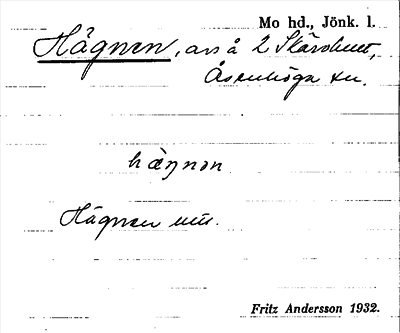 Mo hd., Jönk. l.
Hägnen, avs å 2 Skärshult,
Åsenhöga sn.
hæŋnən
Hägnen uu.
Fritz Andersson 1932.